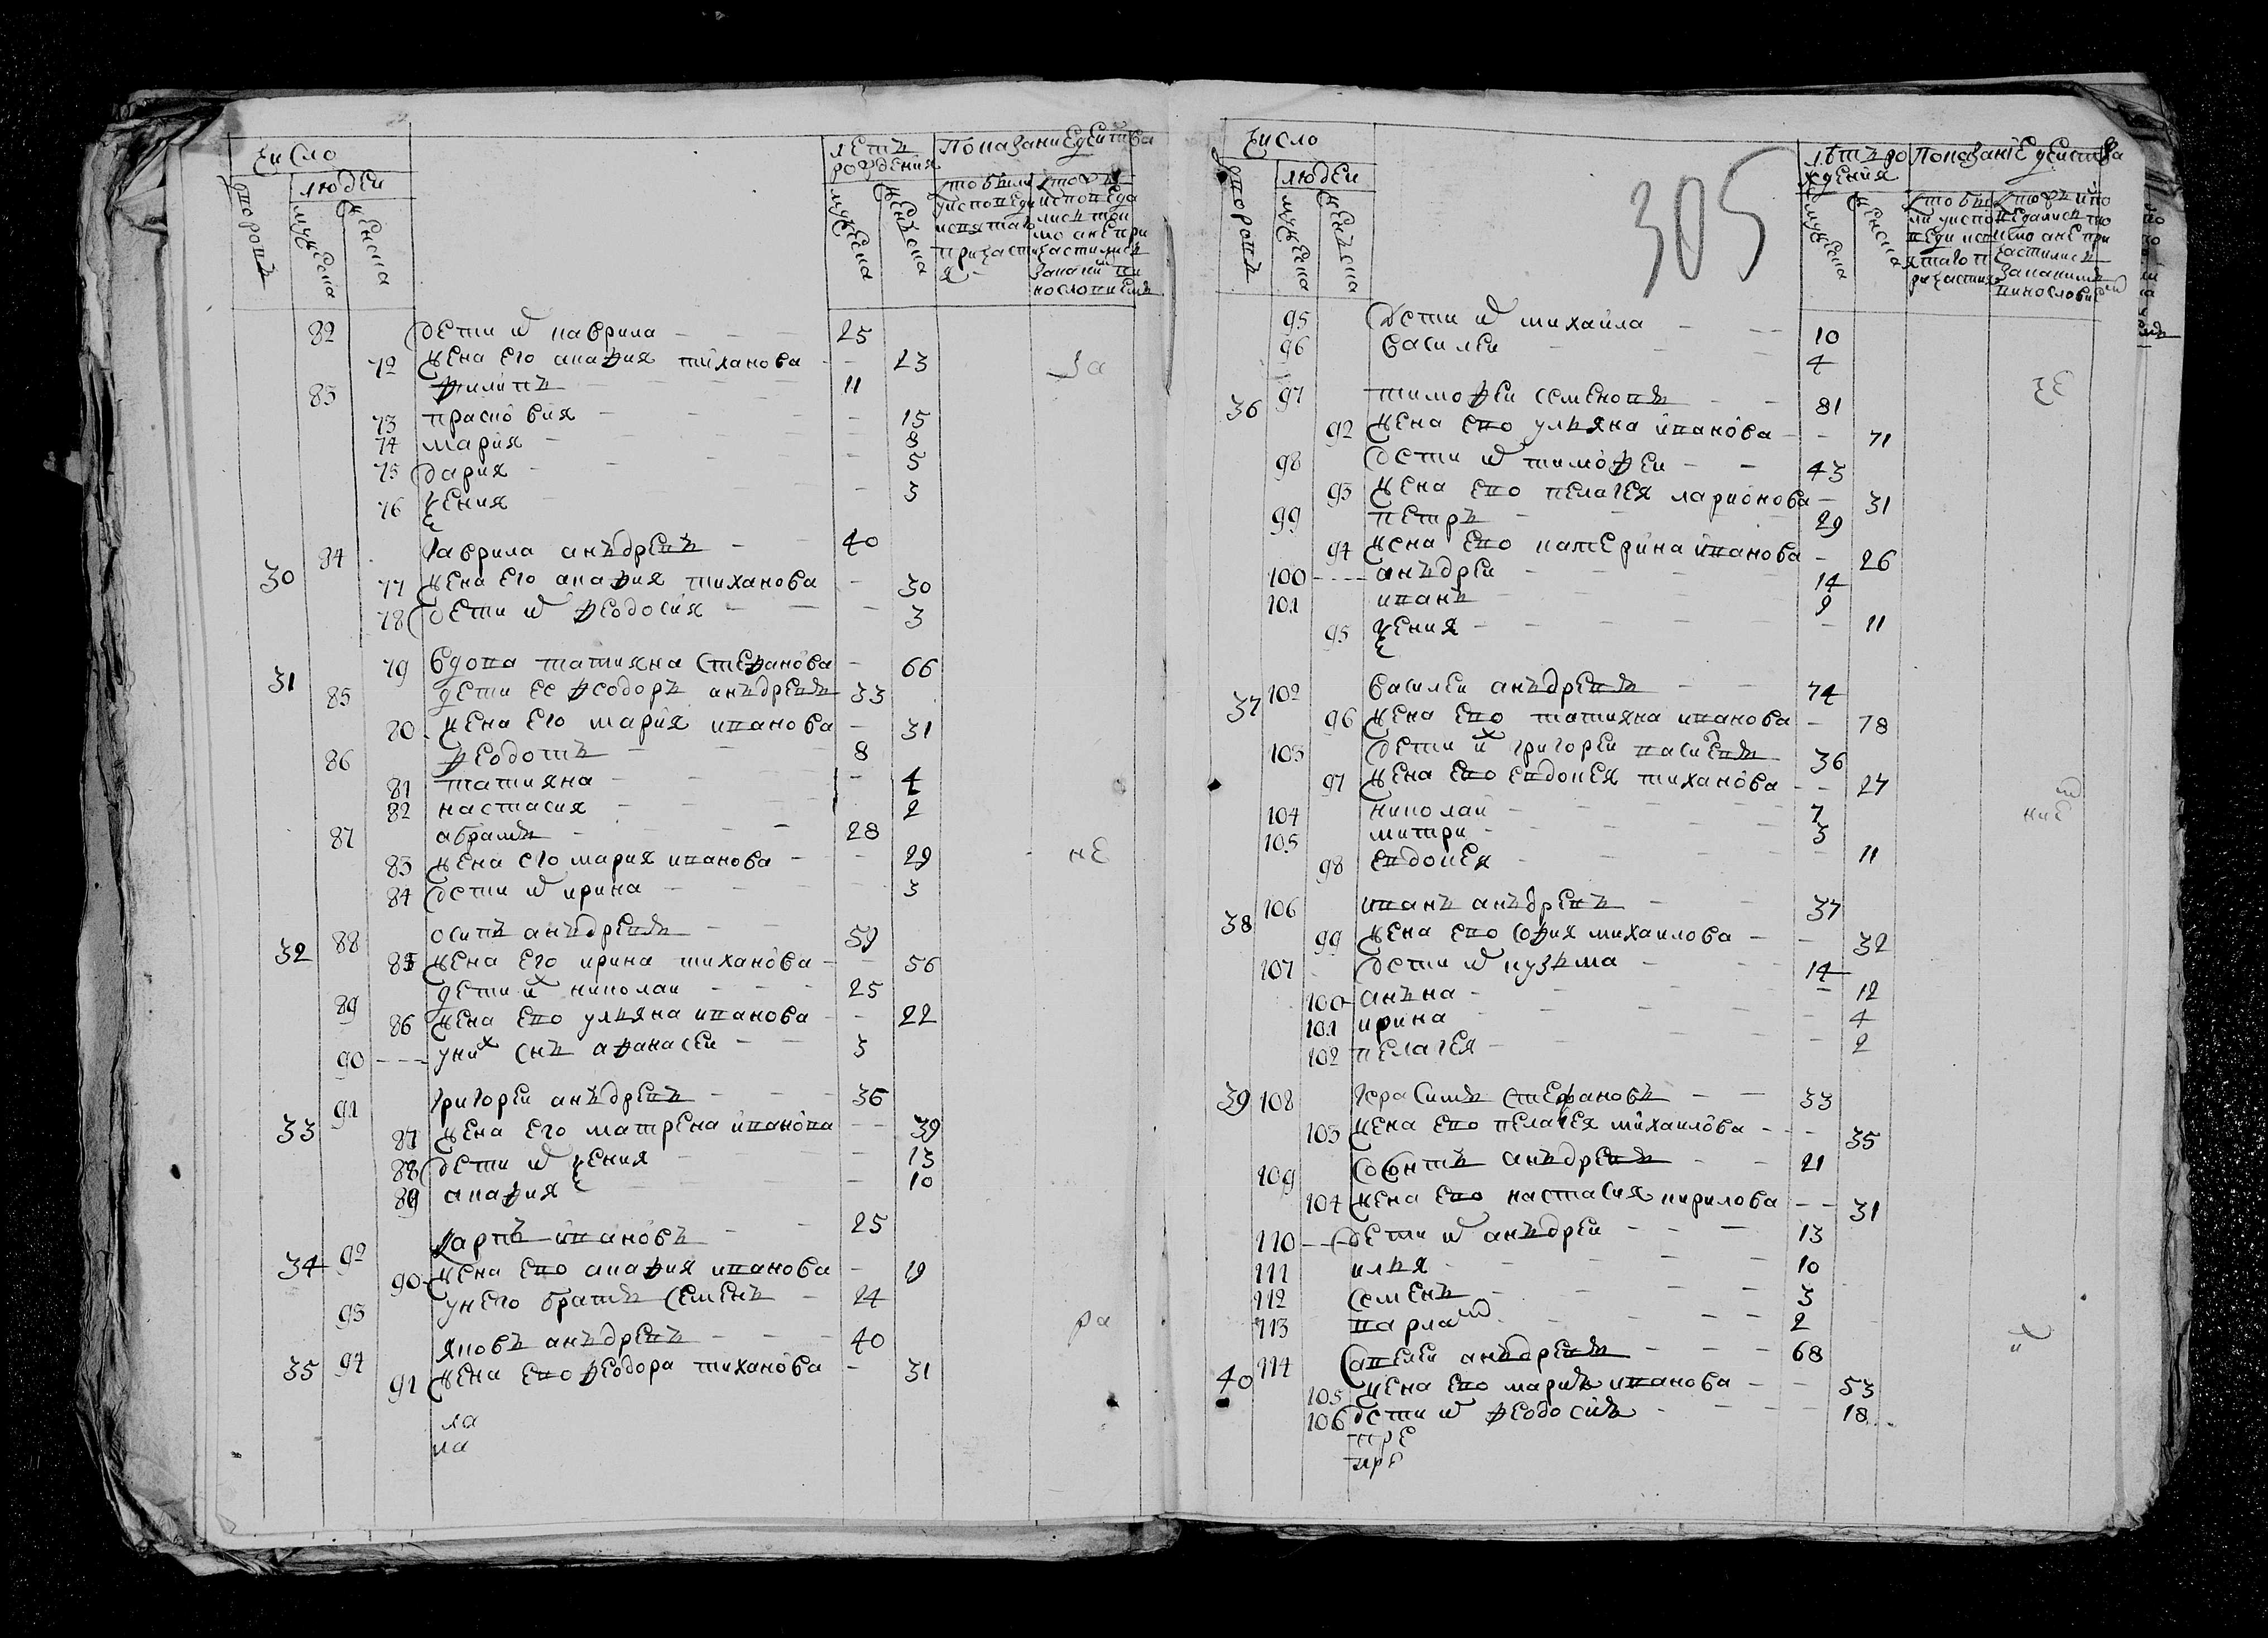 число
людей
дворовъ
мужеска
женска
летъ
рождения
мужеска
женска
показание действа
82 дети и гаврила - - - 25
72 жена его агафия тиханова - 23
за
83 филипъ - - - 11
73 прасковия - - - 15
74 мария - - - 8
75 дария - - - 5
76 ксения - - - 3
30 84 гаврила анъдреевъ - - 40
77 жена его агафия тиханова - 30
78 дети и феодосия - - - 3
31 79 вдова татияна стефанова - 66
85 дети ее феодоръ анъдреевъ 33
80 жена его мария иванова - 31
86 федотъ - - - 8
81 татияна - - - 4
82 настасия - - - 2
87 абрамъ - - - 28
83 жена его мария иванова - - 29
не
84 дети и ирина - - - 3
32 88 осипъ анъдреевъ - - 59
85 жена его ирина тиханова - - 56
89 дети их николаи - - - 25
86 жена ево ульяна иванова - - 22
90 - - - у них снъ афанасеи - - 3
33 91 григореи анъдреевъ - - - 36
87 жена его матрена иванова - - 39
88 дети и ксения - - - 13
89 агафия - - - 10
34 92 карпъ ивановъ - - 25
90 жена ево агафия иванова - 19
93 у него братъ семенъ - 24
ра
35 94 яковъ анъдреевъ - - - 40
91 жена ево феодора тиханова - 31
ла
ла
305
число
людей
дворовъ
мужеска
женска
летъ ро
ждения
мужеска
женска
показание действа
95 дети и михаила - - - 10
96 василеи - - - 4
36 97 тимофеи семеновъ - - 81
92 жена ево ульяна иванова - - 71
98 дети и тимофеи - - 43
93 жена ево пелагея ларионова - 31
99 петръ - - - 29
94 жена ево катерина иванова - 26
100 - - - анъдреи - - - 14
101 иванъ - - - 9
95 ксения - - - 11
37 102 василеи анъдреевъ - - 74
96 жена ево татияна иванова - 78
103 дети их григореи васильевъ 36
97 жена ево евдокея тиханова - - 27
104 николаи - - - 7
ние
105 митри - - - 3
98 евдокея - - - 11
38 106 иванъ анъдреевъ - - 37
99 жена ево софия михаилова - - 32
107 дети и кузьма - - - 14
100 анъна - - - 12
101 ирина - - - 4
102 пелагея - - - 2
39 108 герасимъ стефановъ - - 33
103 жена ево пелагея михаилова - - - 35
109 созонтъ анъдреевъ - - 21
104 жена ево настасия кирилова - - 31
110 - - дети и анъдреи - - - 13
111 илья - - - 10
112 семенъ - - - 3
113 варлам - - - 2
40 114 савелеи анъдреевъ - - - 68
105 жена ево мария иванова - - 53
106 дети и феодосия - - - 18
пре
пре